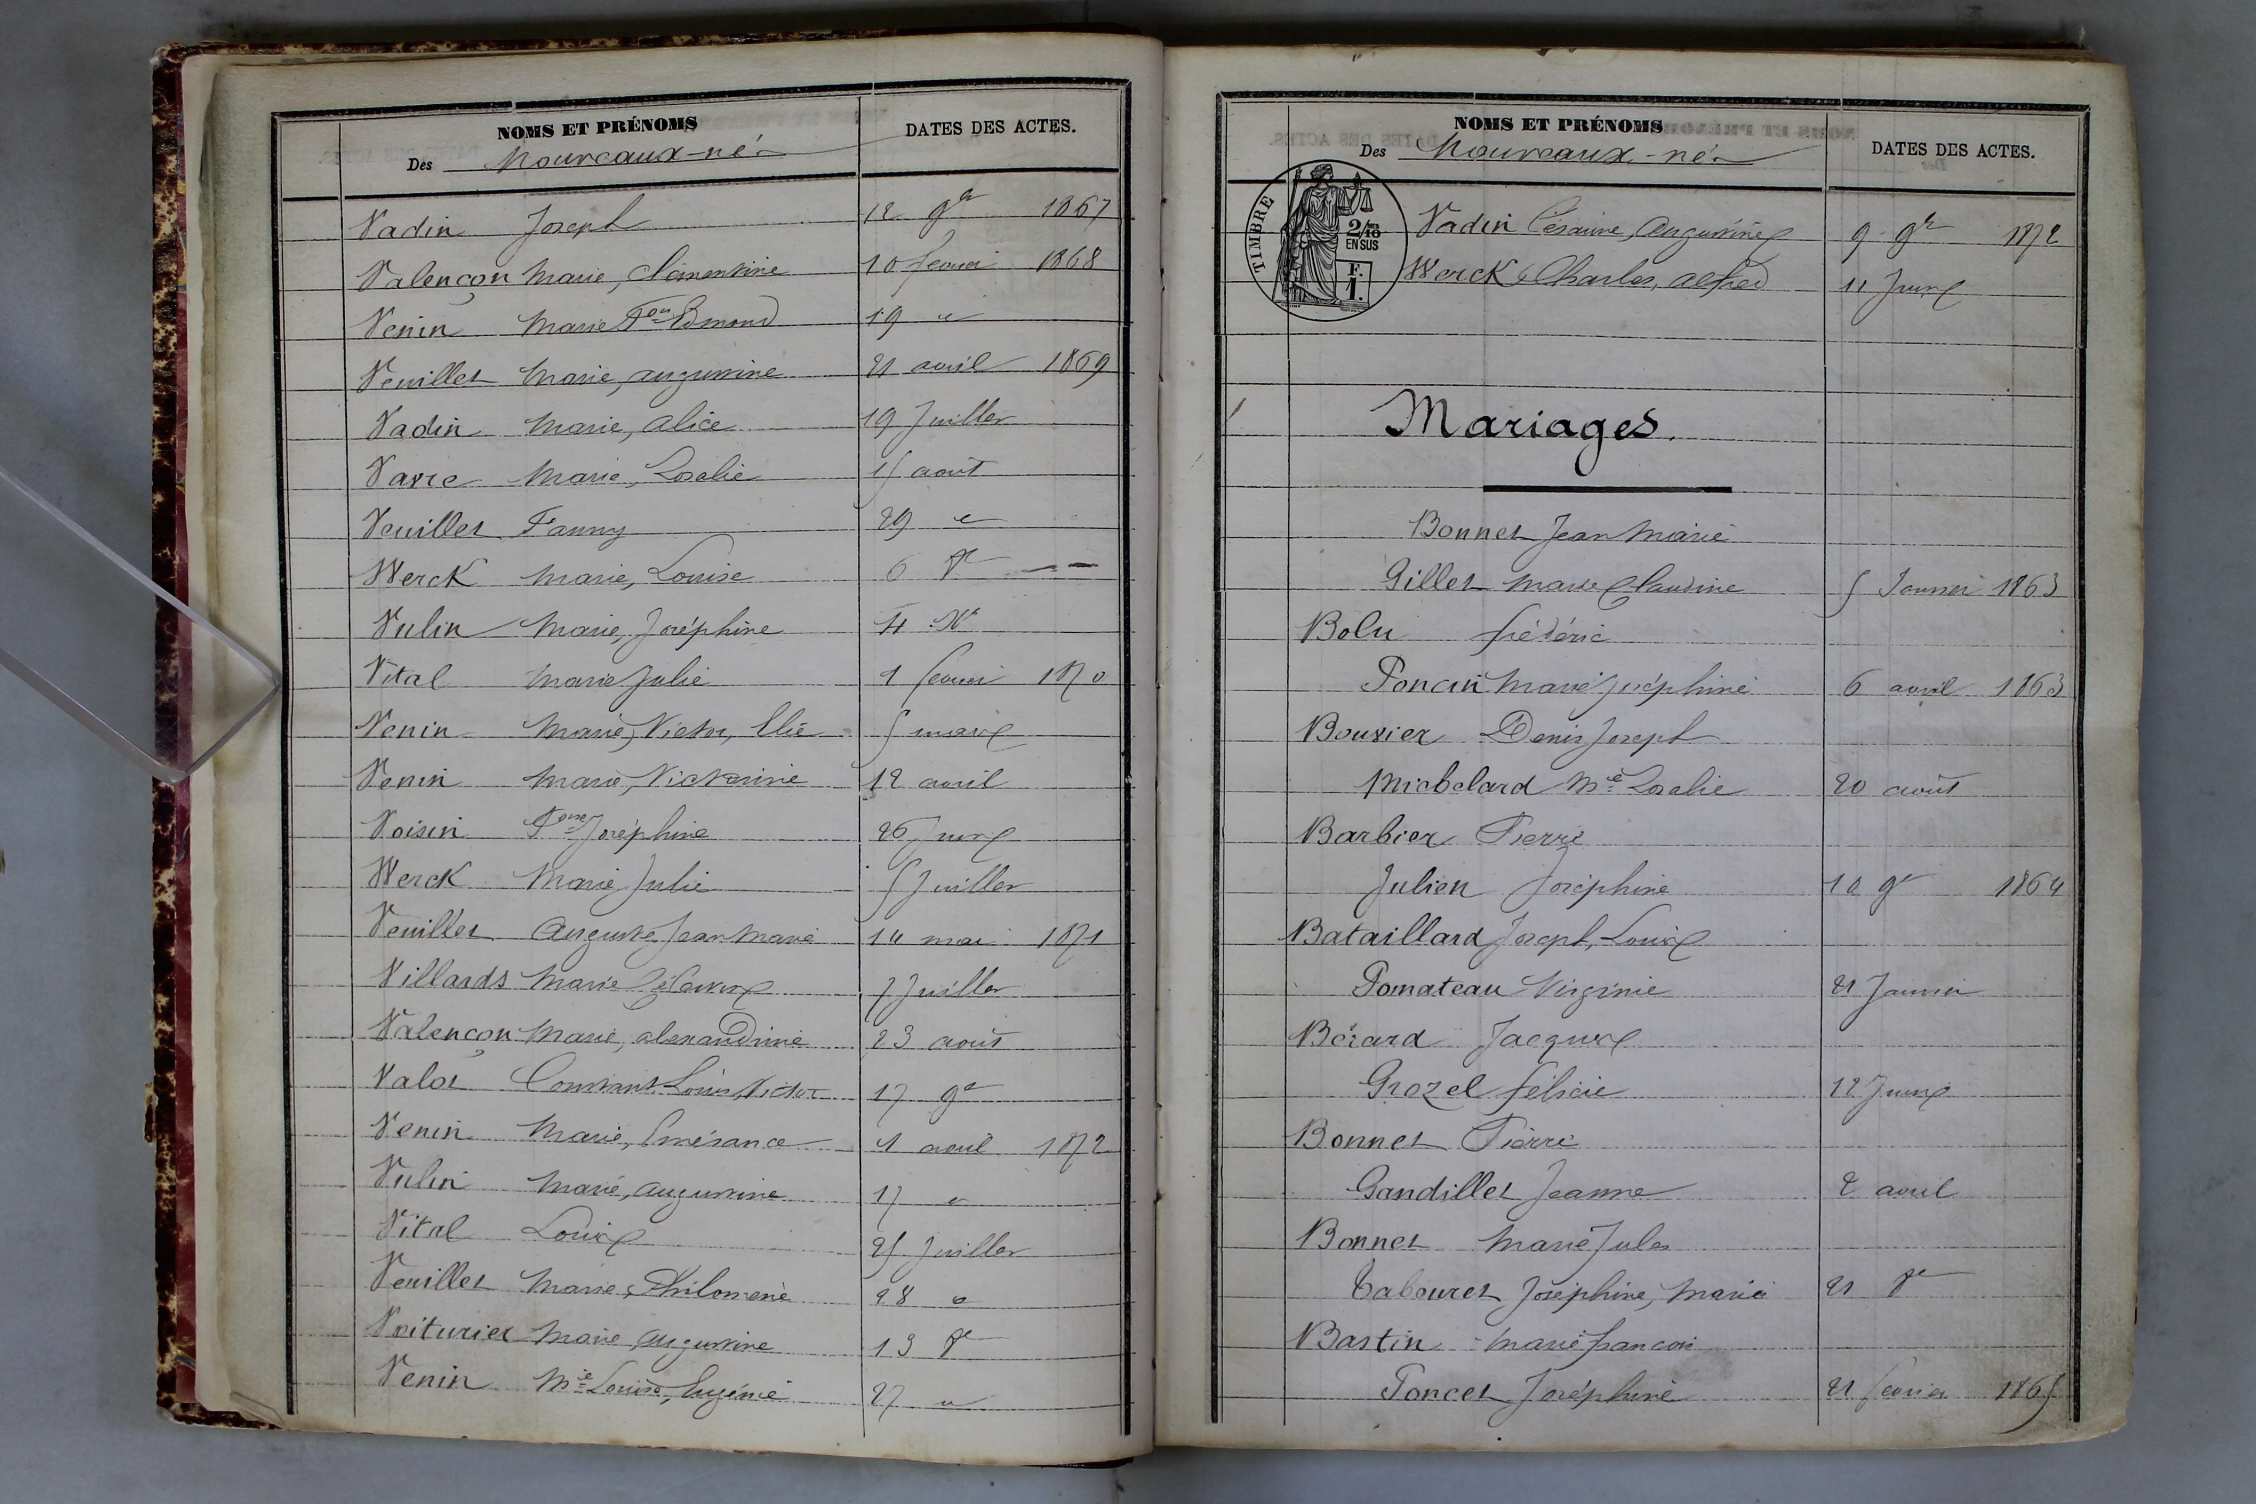 NOMS ET PRÉNOMS
Des Nouveaux-nés
DATES DES ACTES.
Vadin Joseph 12 9bre 1867
Valençon Marie, Clémentine 10 février 1868
Venin Marie Fois Edmond 19 "
Veuillet Marie, augustine 21 avril 1869
Vadin Marie, alice 19 Juillet
Vavre Marie, Rosalie 15 août
Veuillet Fanny 29 "
Werck Marie, Louise 6 8e
Vulin Marie, Joséphine 4 Xe
Vital Marie Julie 1 février 1870
Venin Marie, Victor, Elie 5 mars
Venin Marie, Victorine 12 avril
Voisin Foise Joséphine 26 Juin
Werck Marie Julie 5 Juillet
Veuillet Auguste Jean Marie 14 mai 1871
Villards Marie 7 Juillet
Valençon Marie, alexandrine 23 août
Valot Constant Louis Victor 17 9e
Venin Marie, Emérance 1 avril 1872
Vulin Marie, augustine 17 "
Vital Louis 25 Juillet
Veuillet Marie, Philomène 28 "
Voiturier Marie, augustine 13 8e
Venin Mie Louise, Eugénie 27 "
NOMS ET PRÉNOMS
Des Nouveaux-nés
DATES DES ACTES.
TIMBRE
2/10
EN SUS
F.
1.
Vadin Césarine, augustine 9 9bre 1872
Werck Charles, alfred 11 Juin
Mariages.
Bonnet Jean Marie
Gillet Marie Claudine 5 Janvier 1863
Bolu frédéric
Poncin Marie Joséphine 6 avril 1863
Bouvier Denis Joseph
Michelard Mie Rosalie 20 août
Barbier Pierre
Julien Joséphine 10 9e 1864
Bataillard Joseph, Louis
Pomateau Virginie 21 Janvier
Bérard Jacques
Grozel félicie 12 Juin
Bonnet Pierre
Gandillet Jeanne 2 avril
Bonnet Marie Jules
Tabouret Joséphine, Marie 21 8e
Bastin Marie françois
Poncet Joséphine 21 février 1865